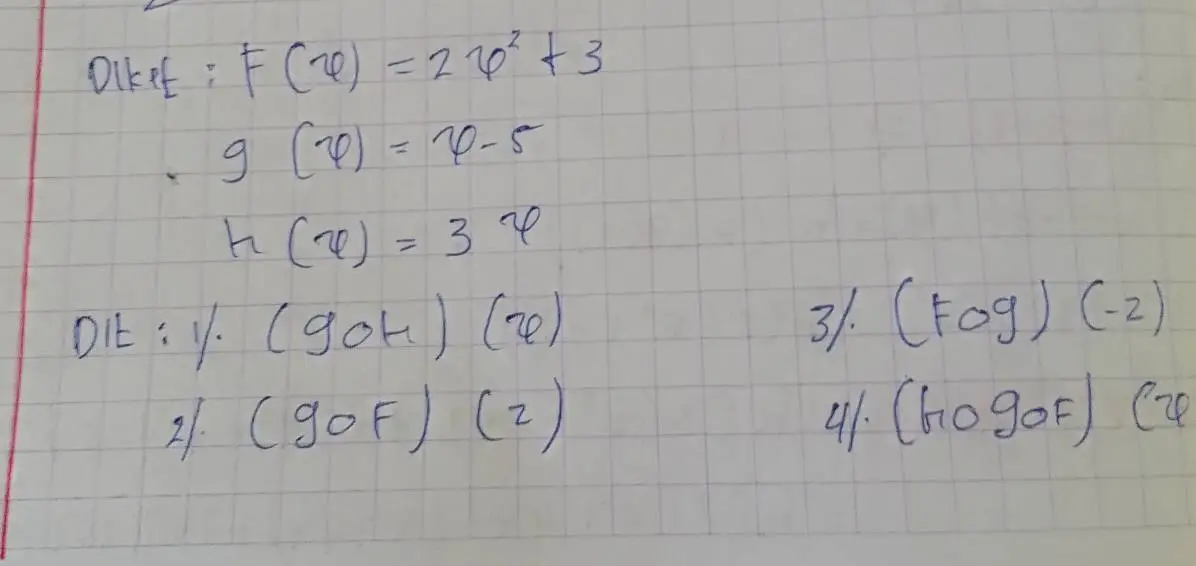 Diket : F (x) = 2x² + 3
g (x) = x - 5
h (x) = 3 x
Dit : 1/. (goh) (x)
2/. (goF) (2)
3/. (Fog) (-2)
4/. (hogoF) (x